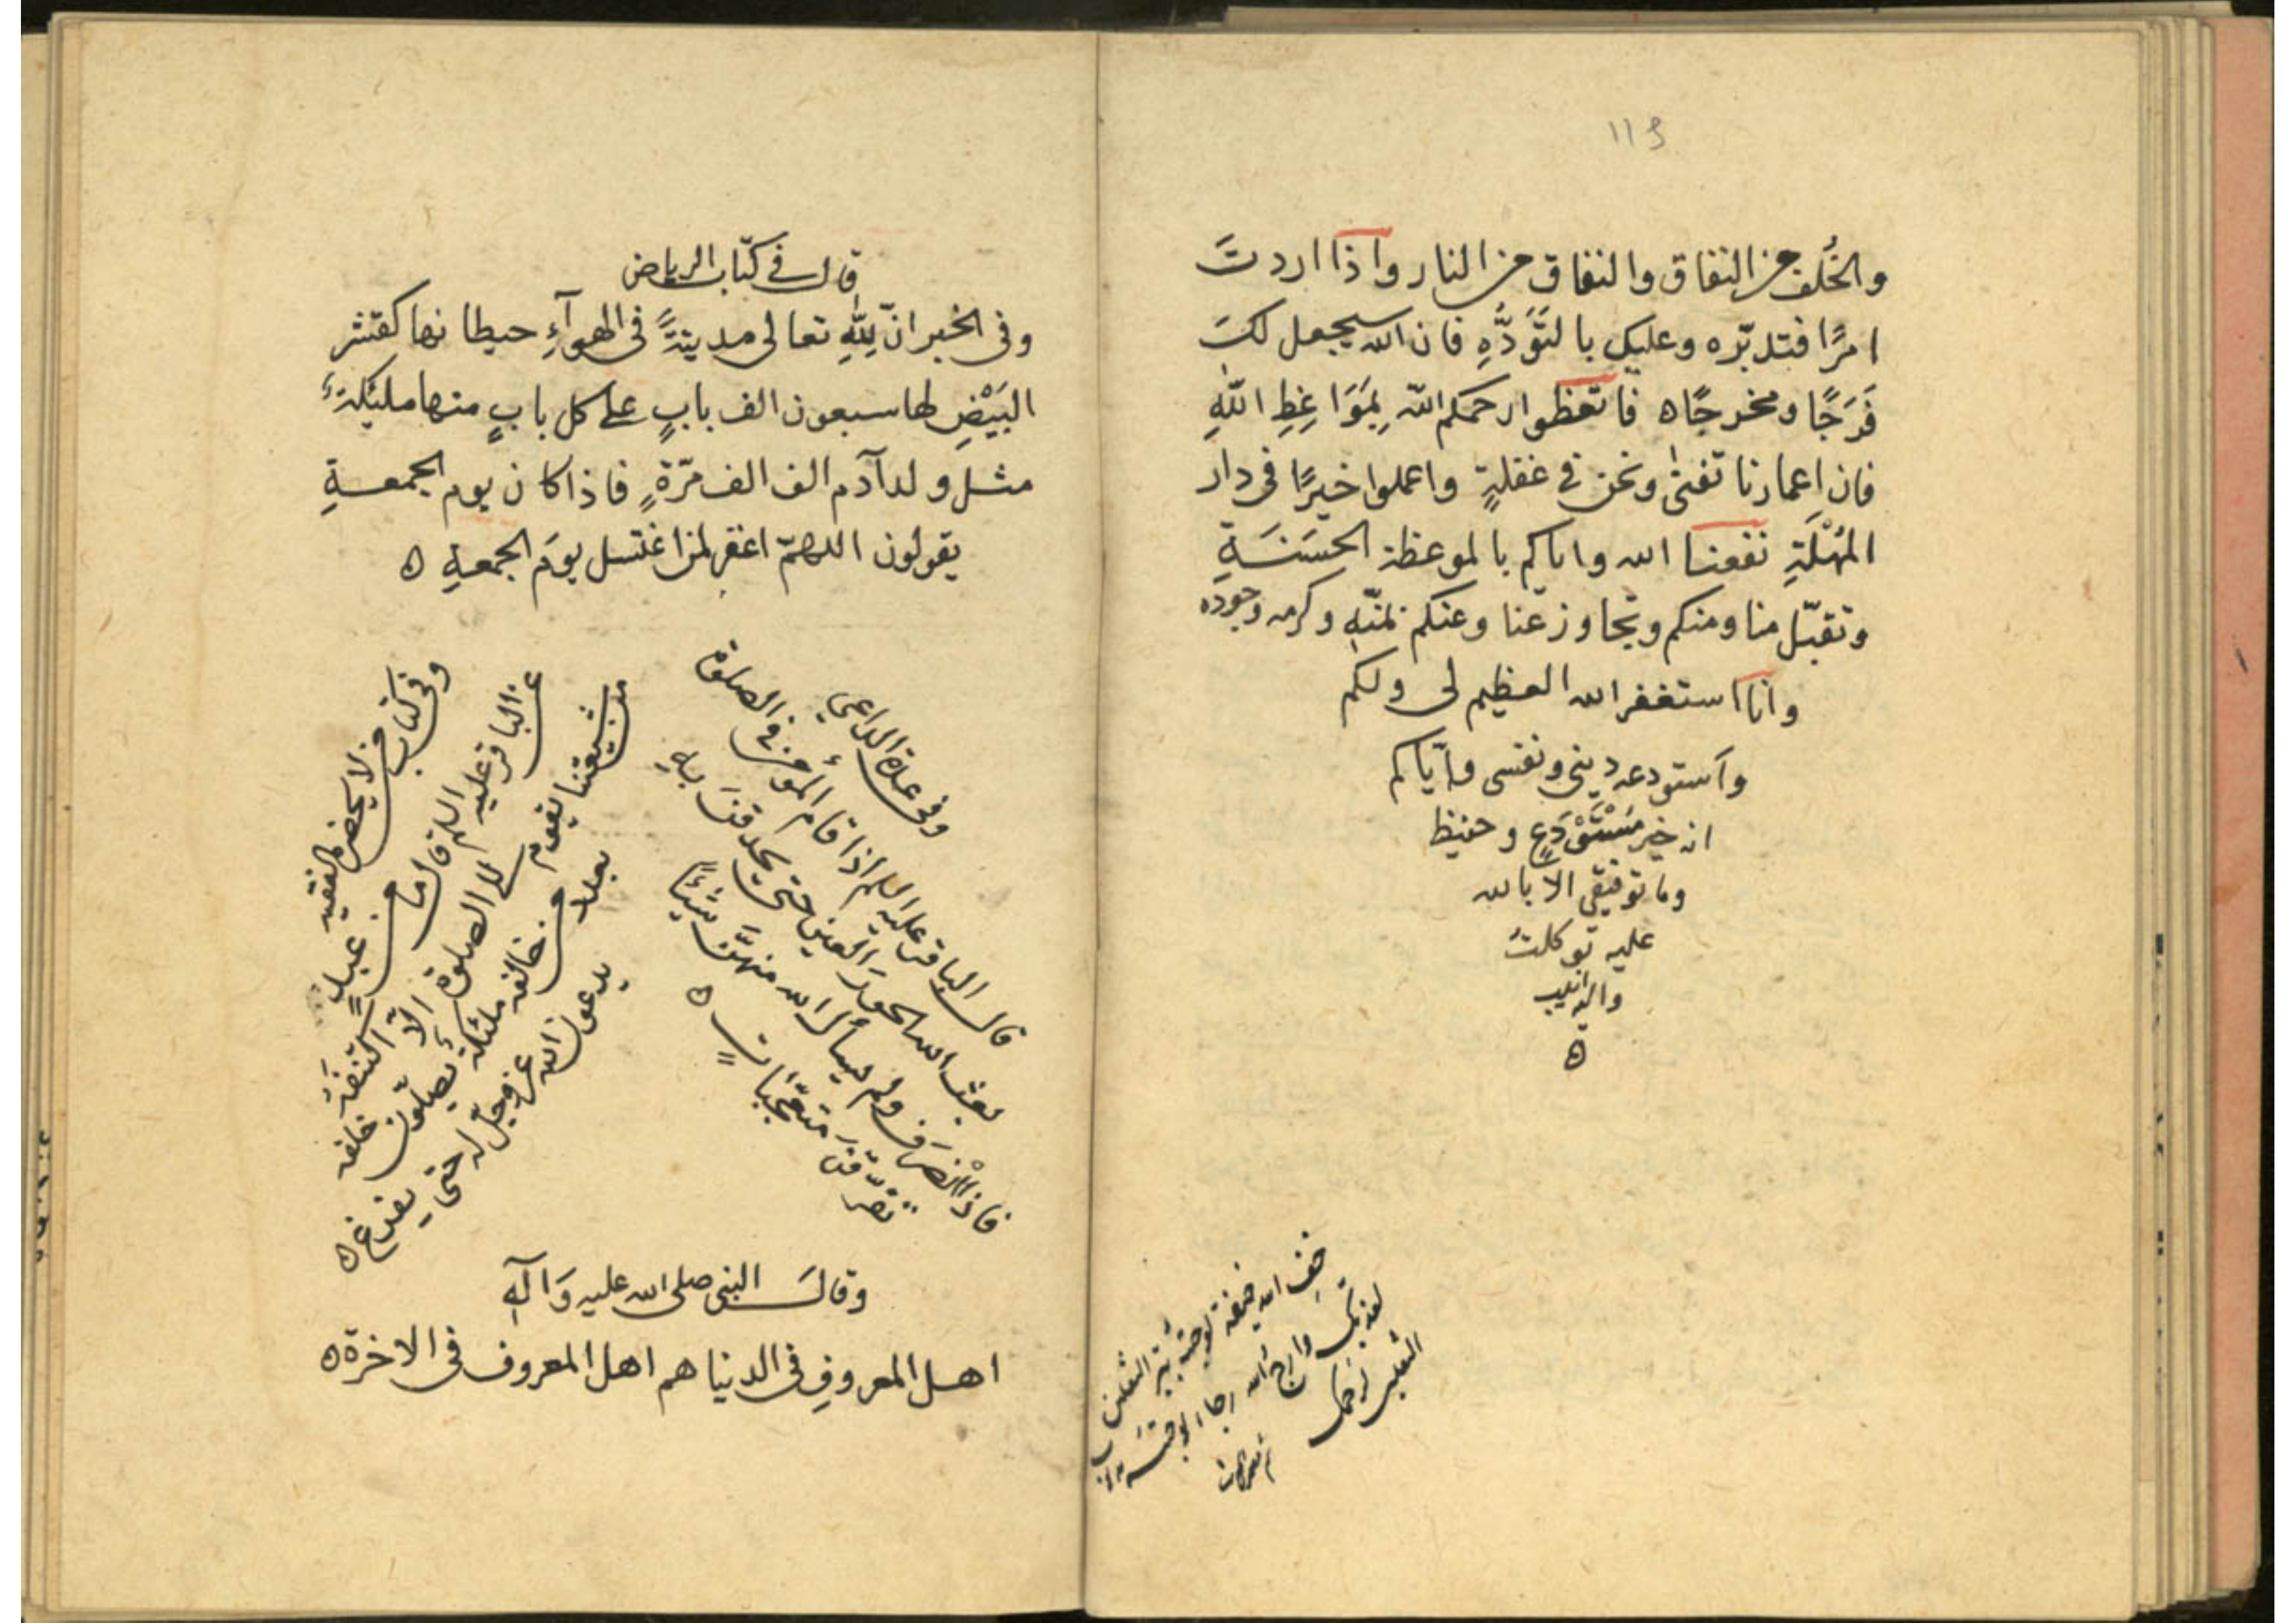 ١١٤
والخُلف من النفاق والنفاق من النار واذا اردتَ
امرًا فتدبّره وعليك بالتَّوَدُّهِ فان الله سيجعل لكَ
فَرَجًا ومخرجًا ه فاتّعظوا رحمكم الله بِمَوَاعِظِ اللّهِ
فان اعمارنا تفنى ونحن في غفلةٍ واعملوا خيرًا في دار
المُهْلَةِ نفعنا الله واياكم بالموعظة الحسَنَةِ
وتقبّل منا ومنكم وتجاوز عنا وعنكم بمنّهِ وكرمه وجوده
وانا استغفر الله العظيم لى ولكم
واستودعه دينى ونفسى واياكم
انه خير مُسْتَوْدَعٍ وحفيظ
وما توفيقى الا بالله
عليه توكلتُ
واليه انيب
ه
خفِ الله خيفة لو جئته ببرّ الثقلين
لعذبك وارج الله رجاء لو جئته بذنوب
الثقلين لرحمك
قال في كتاب الرياض
وفى الخبر انّ لِلّهِ تعالى مدينةً فى الهوآءِ حيطانها كقشر
البَيْضِ لها سبعون الف بابٍ على كل بابٍ منها مليكةٌ
مثل ولد آدم الف الف مرّةٍ فاذا كان يوم الجمعةِ
يقولون اللهمّ اغفر لمن اغتسل يومَ الجمعةِ ه
وفى عدة الداعى
قال الباقر عليه السلم اذا قام المؤمن في الصلوة
بعث الله الحورَ العين حتى يحدقنَ بهِ
فاذا انْصَرَف ولم يسأل الله منهنّ شيئًا
تفرّقنَ متعجّباتٍ ه
وفى كتاب من لا يحضره الفقيه
عن الباقر عليه السلم قال ما من عبدٍ
من شيعتنا يقوم الى الصلوة الّا اكتنفَتْهُ
بعدد من خالفه مليكةٌ يصلّون خلفه
يدعون الله عزوجلّ له حتى يفرغ ه
وقالَ النبى صلى الله عليه وَآلهِ
اهل المعروفِ فى الدنيا هم اهل المعروف فى الاخرة ه